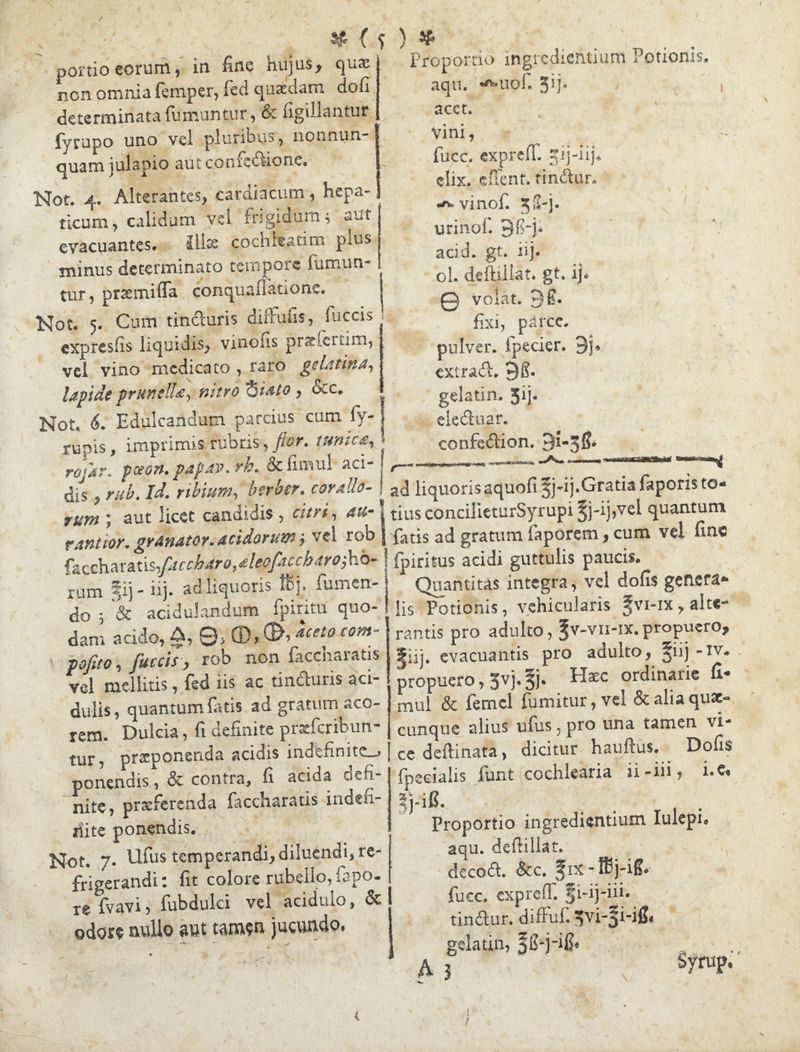 * ( 5 ) *
portio eorum, in fine hujus, quæ
non omnia ſemper, ſed quædam doſi
determinata ſumuntur, & ſigillantur
ſyrupo uno vel pluribus, nonnun-
quam julapio aut confectione.
Not. 4. Alterantes, cardiacum, hepa-
ticum, calidum vel frigidum; aut
evacuantes. Illæ cochleatim plus
minus determinato tempore ſumun-
tur, præmiſſa conquaſſatione.
Not. 5. Cum tincturis diffuſis, ſuccis
expresſis liquidis, vinoſis præſertim,
vel vino medicato, raro gelatina,
lapide prunellæ, nitro ♁iato, &c.
Not. 6. Edulcandum parcius cum ſy-
rupis, imprimis rubris, flor. tunicæ,
roſar. pœon. papav. rh. & ſimul aci-
dis, rub. Id. ribium, berber. corallo-
rum; aut licet candidis, citri, au-
rantior. granator. acidorum; vel rob
ſaccharatis, ſaccharo, æleoſaccharo; ho-
rum ℥ij - iij. ad liquoris ℔j. ſumen-
do; & acidulandum ſpiritu quo-
dam acido, 🜍, 🜔, 🜕, 🜖, aceto com-
poſito, ſuccis, rob non ſaccharatis
vel mellitis, ſed iis ac tincturis aci-
dulis, quantum ſatis ad gratum aco-
rem. Dulcia, ſi definite præſcribun-
tur, præponenda acidis indefinite
ponendis, & contra, ſi acida defi-
nite, præferenda ſaccharatis indefi-
nite ponendis.
Not. 7. Uſus temperandi, diluendi, re-
frigerandi: fit colore rubello, ſapo-
re ſvavi, ſubdulci vel acidulo, &
odore nullo aut tamen jucundo.
Proportio ingredientium Potionis.
aqu. uoſ. ʒij.
acet.
vini,
ſucc. expreſſ. ʒij-iij.
elix. eſſent. tinctur.
vinoſ. ʒß-j.
urinoſ. ℈ß-j.
acid. gt. iij.
ol. deſtillat. gt. ij.
🜔 volat. ℈ß.
fixi, parce.
pulver. ſpecier. ℈j.
extract. ℈ß.
gelatin. ʒij.
electuar.
confection. ℈i-ʒß.
ad liquoris aquoſi ℥j-ij. Gratia ſaporis to-
tius concilietur Syrupi ℥j-ij, vel quantum
ſatis ad gratum ſaporem, cum vel ſine
ſpiritus acidi guttulis paucis.
Quantitas integra, vel doſis genera-
lis Potionis, vehicularis ℥vi-ix, alte-
rantis pro adulto, ℥v-vii-ix. pro puero,
℥iij. evacuantis pro adulto, ℥iij - iv.
pro puero, ʒvj. ℥j. Hæc ordinarie ſi-
mul & ſemel ſumitur, vel & alia quæ-
cunque alius uſus, pro una tamen vi-
ce deſtinata, dicitur hauſtus. Doſis
ſpecialis ſunt cochlearia ii-iii, i. e.
℥j-iß.
Proportio ingredientium Iulepi.
aqu. deſtillat.
decoct. &c. ℥ix - ℔j-iß.
ſucc. expreſſ. ℥i-ij-iii.
tinctur. diffuſ. ʒvi-℥i-iß.
gelatin, ℥ß-j-iß.
A 3
Syrup.